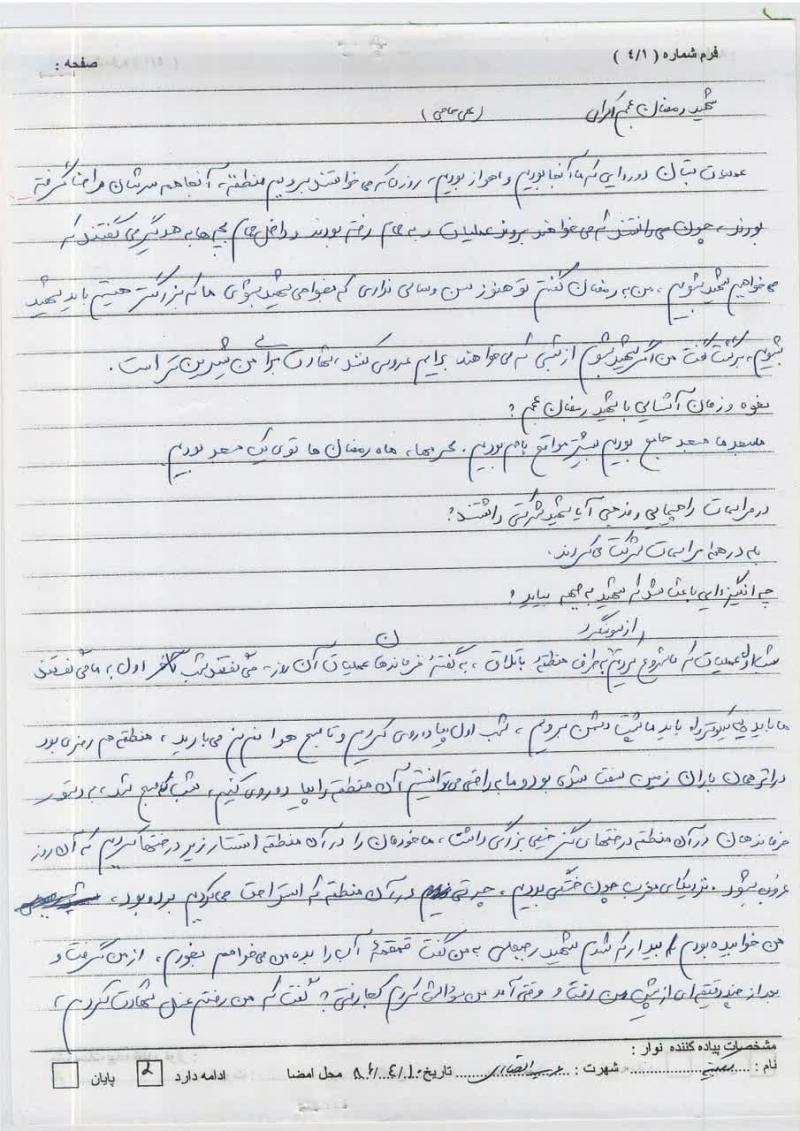 فرم شماره ( ٤/١ )
صفحه :
شهید رمضان عجم اکرامی
عملیات دوره‌ایی که ما آنجا بودیم و اهواز بودیم، روزی که می‌خواستند برویم منطقه، آنجا هم سرشان را حنا گرفته
بودند، چون می‌دانستند که می‌خواهند بروند عملیات و به حمام رفته بودند داخل حمام بچه‌ها به همدیگر می‌گفتند که
می‌خواهیم شهید بشویم، من به رمضان گفتم تو هنوز سن و سالی نداری که بخواهی شهید بشوی ما که بزرگتر هستیم باید شهید
بشویم، برگشت گفت من اگر شهید بشوم از شبی که می‌خواهند برایم عروسی کنند، شهادت برای من شیرین تر است.
نحوه و زمان آشنایی با شهید رمضان عجم ؟
مسجد ما مسجد جامع بودیم بیشتر مواقع باهم بودیم. محرمها، ماه رمضان ها توی یک مسجد بودیم.
در مراسمات راهپیمایی و مذهبی آیا شهید شرکتی داشتند؟
بله در همه مراسمات شرکت می‌کردند.
چه انگیزه‌ایی باعث شد که شهید به جبهه بیاید ؟
عملیات که ما شروع کردیم به طرف منطقه باتلاق، به گفته فرمانده‌ها عملیات آن روز، شب اول، ما
ما باید کیلومتر راه باید ما پشت دشمن برویم، شب اول پیاده‌روی کردیم و تا صبح هوا نم نم می‌بارید، منطقه هم رملی بود
در اثر همان باران زمین سفت شده بود و ما به راحتی می‌توانستیم آن منطقه را پیاده‌روی کنیم، شب که صبح شد، به دستور
فرمانده‌مان در آن منطقه درختهای گز خیلی بزرگی داشت، ما خودمان را در آن منطقه استتار زیر درختها کردیم که آن روز
غروب بشود. نزدیکهای مغرب چون خستگی بودیم، چرتی در آن منطقه که استراحت می‌کردیم برده بود،
من خوابیده بودم بیدار که شدم شهید رجبعلی به من گفت قمقمه آب را بده من می‌خواهم بخورم، از من گرفت و
بعد از چند دقیقه‌ای از پیش من رفت و وقتی آمد من سؤال کردم کجا رفتی؟ گفت که من رفتم غسل شهادت کردم،
مشخصات پیاده کننده نوار :
نام : شهرت : تاریخ: ٨٤/٤/١٠ محل امضا ادامه دارد 2 پایان